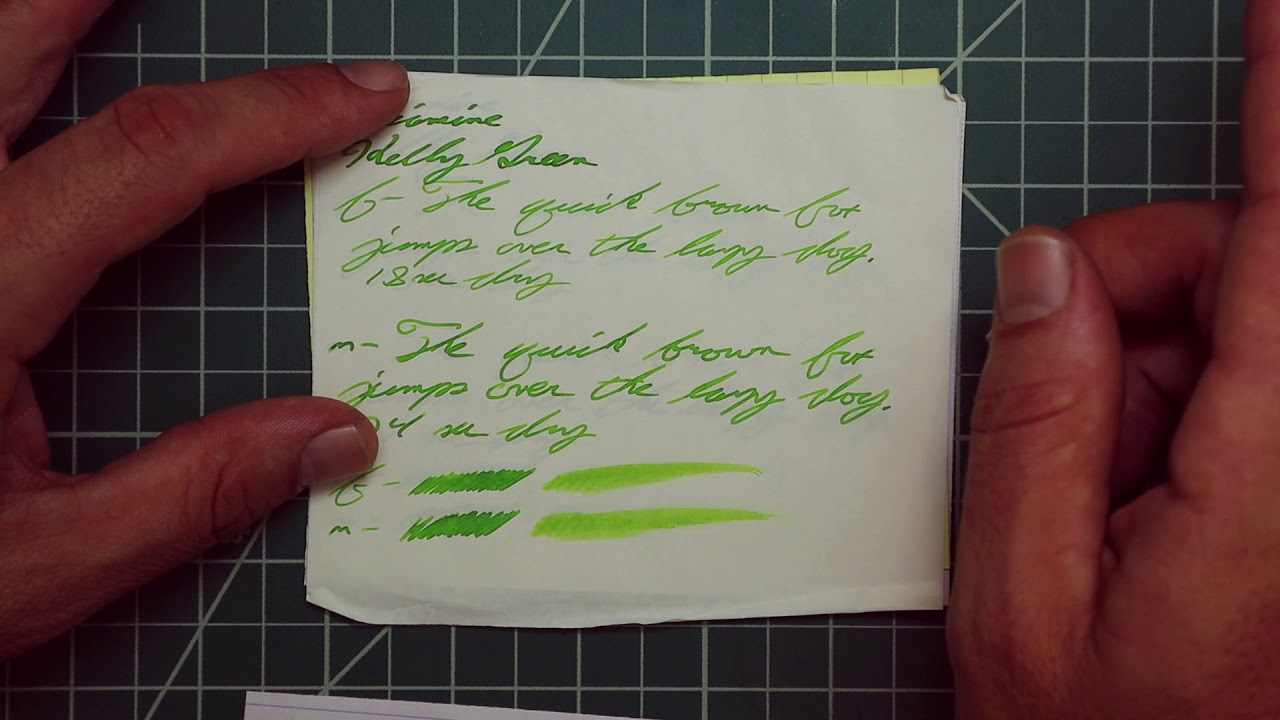 Kelly Green
f- The quick brown fox
jumps over the lazy dog.
18 sec dry
m- The quick brown fox
jumps over the lazy dog.
24 sec dry
f-
m-